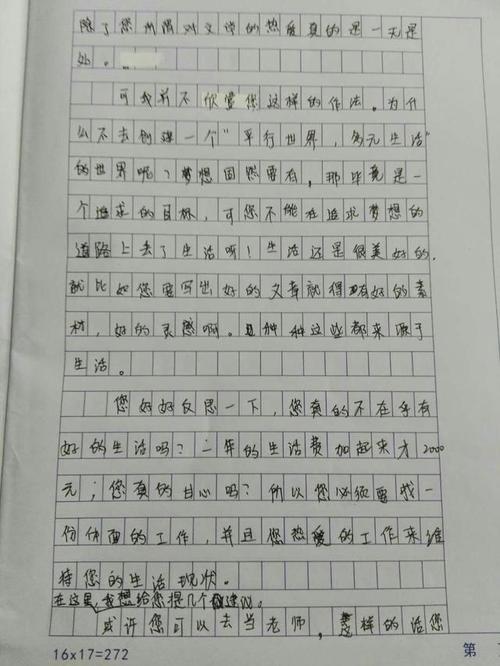 除了您所谓对文学的热爱真的是一无是
处。
可我并不欣赏您这样的作法。为什
么不去创建一个“平行世界，多元生活”
的世界呢？梦想固然要有，那毕竟是一
个追求的目标，可您不能在追求梦想的
道路上丢了生活啊！生活还是很美好的，
就比如您要写出好的文章就得有好的素
材，好的灵感啊。且种种这些都来源于
生活。
您好好反思一下，您真的不在乎有
好的生活吗？二年的生活费加起来才2000
元；您真的甘心吗？所以您必须要找一
份体面的工作，并且您热爱的工作来维
持您的生活现状。
在这里，我想给您提几个建议。
或许您可以去当老师，这样的话您
16x17=272
第